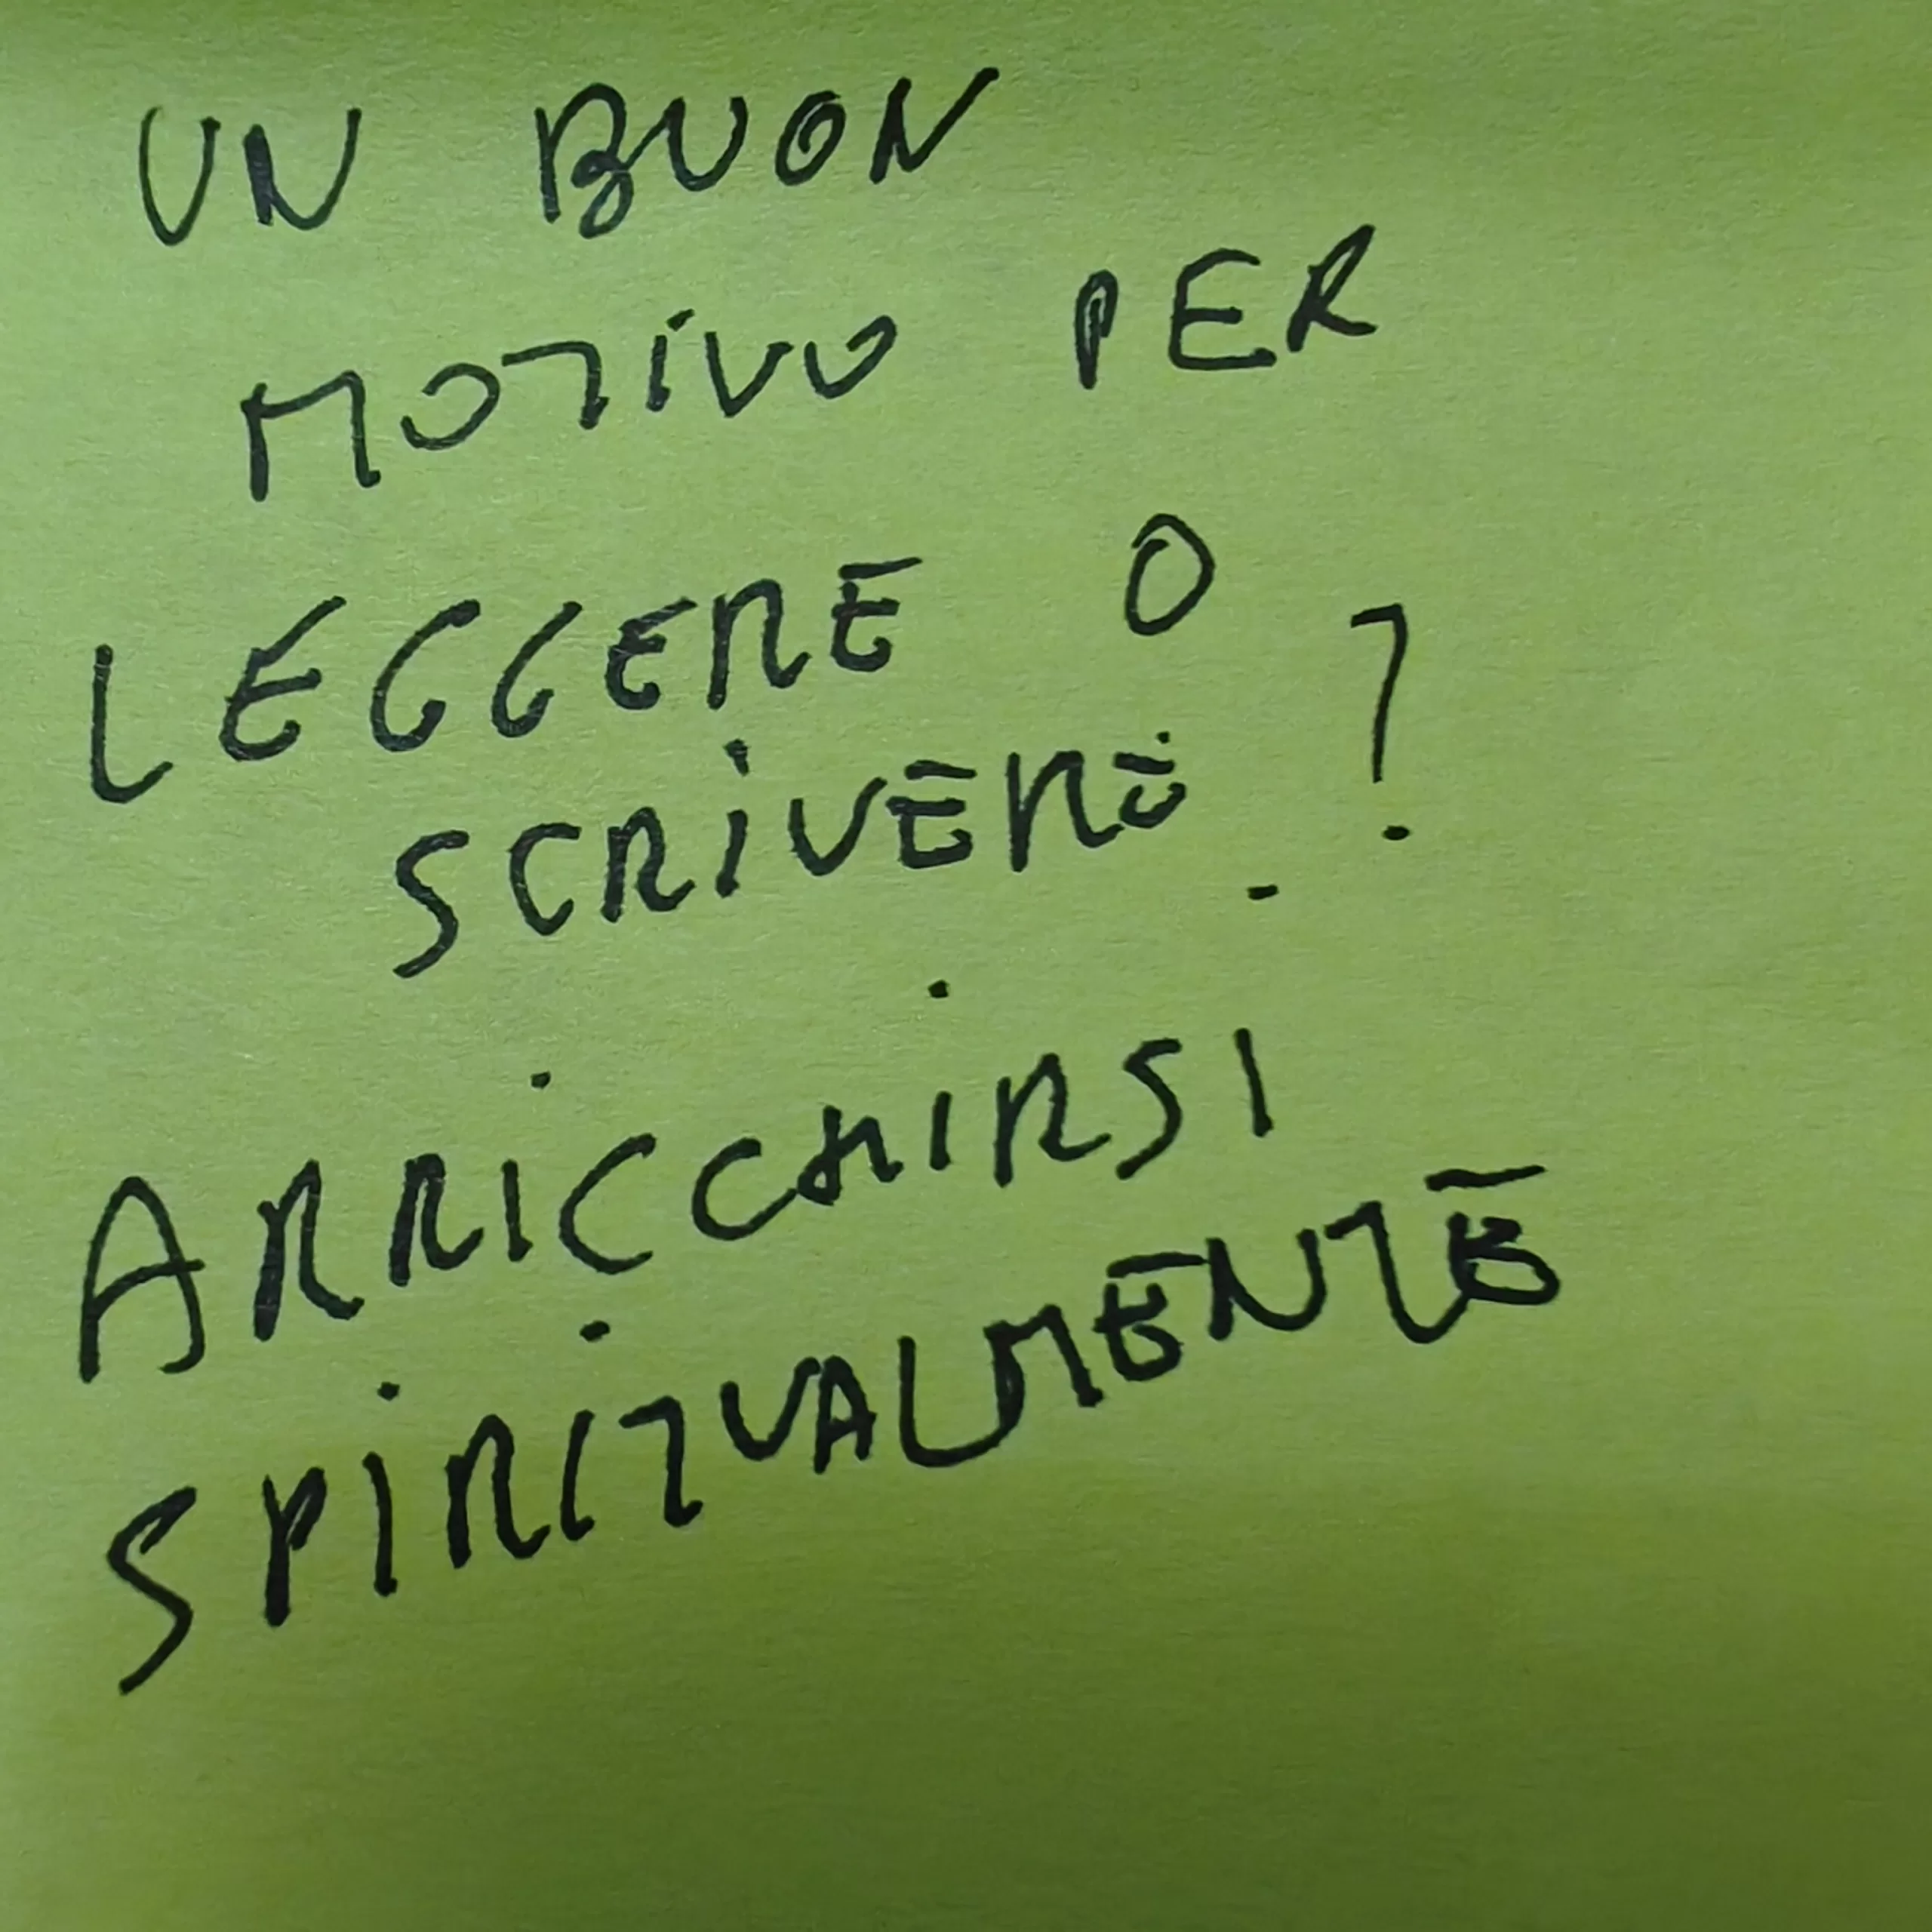 UN BUON
MOTIVO PER
LEGGERE O
SCRIVERE ?
ARRICCHIRSI
SPIRITUALMENTE